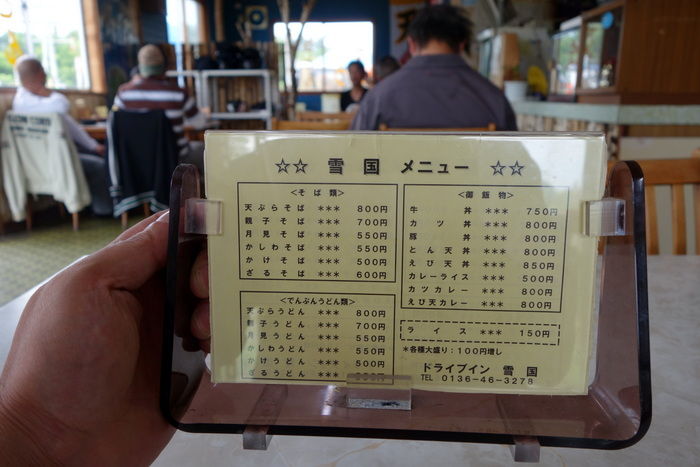 ☆☆ 雪 国 メニュー ☆☆
<そば類>
天ぷらそば *** 800円
親子そば *** 700円
月見そば *** 550円
かしわそば *** 550円
かけそば *** 500円
ざるそば *** 600円
<でんぷんうどん類>
天ぷらうどん *** 800円
親子うどん *** 700円
月見うどん *** 550円
かしわうどん *** 550円
かけうどん *** 500円
ざるうどん ***
<御飯物>
牛 丼 *** 750円
カツ 丼 *** 800円
豚 丼 *** 800円
とん天丼 *** 800円
えび天丼 *** 850円
カレーライス *** 500円
カツカレー *** 800円
えび天カレー *** 800円
ライス *** 150円
*各種大盛り:100円増し
ドライブイン 雪 国
TEL 0136-46-3278